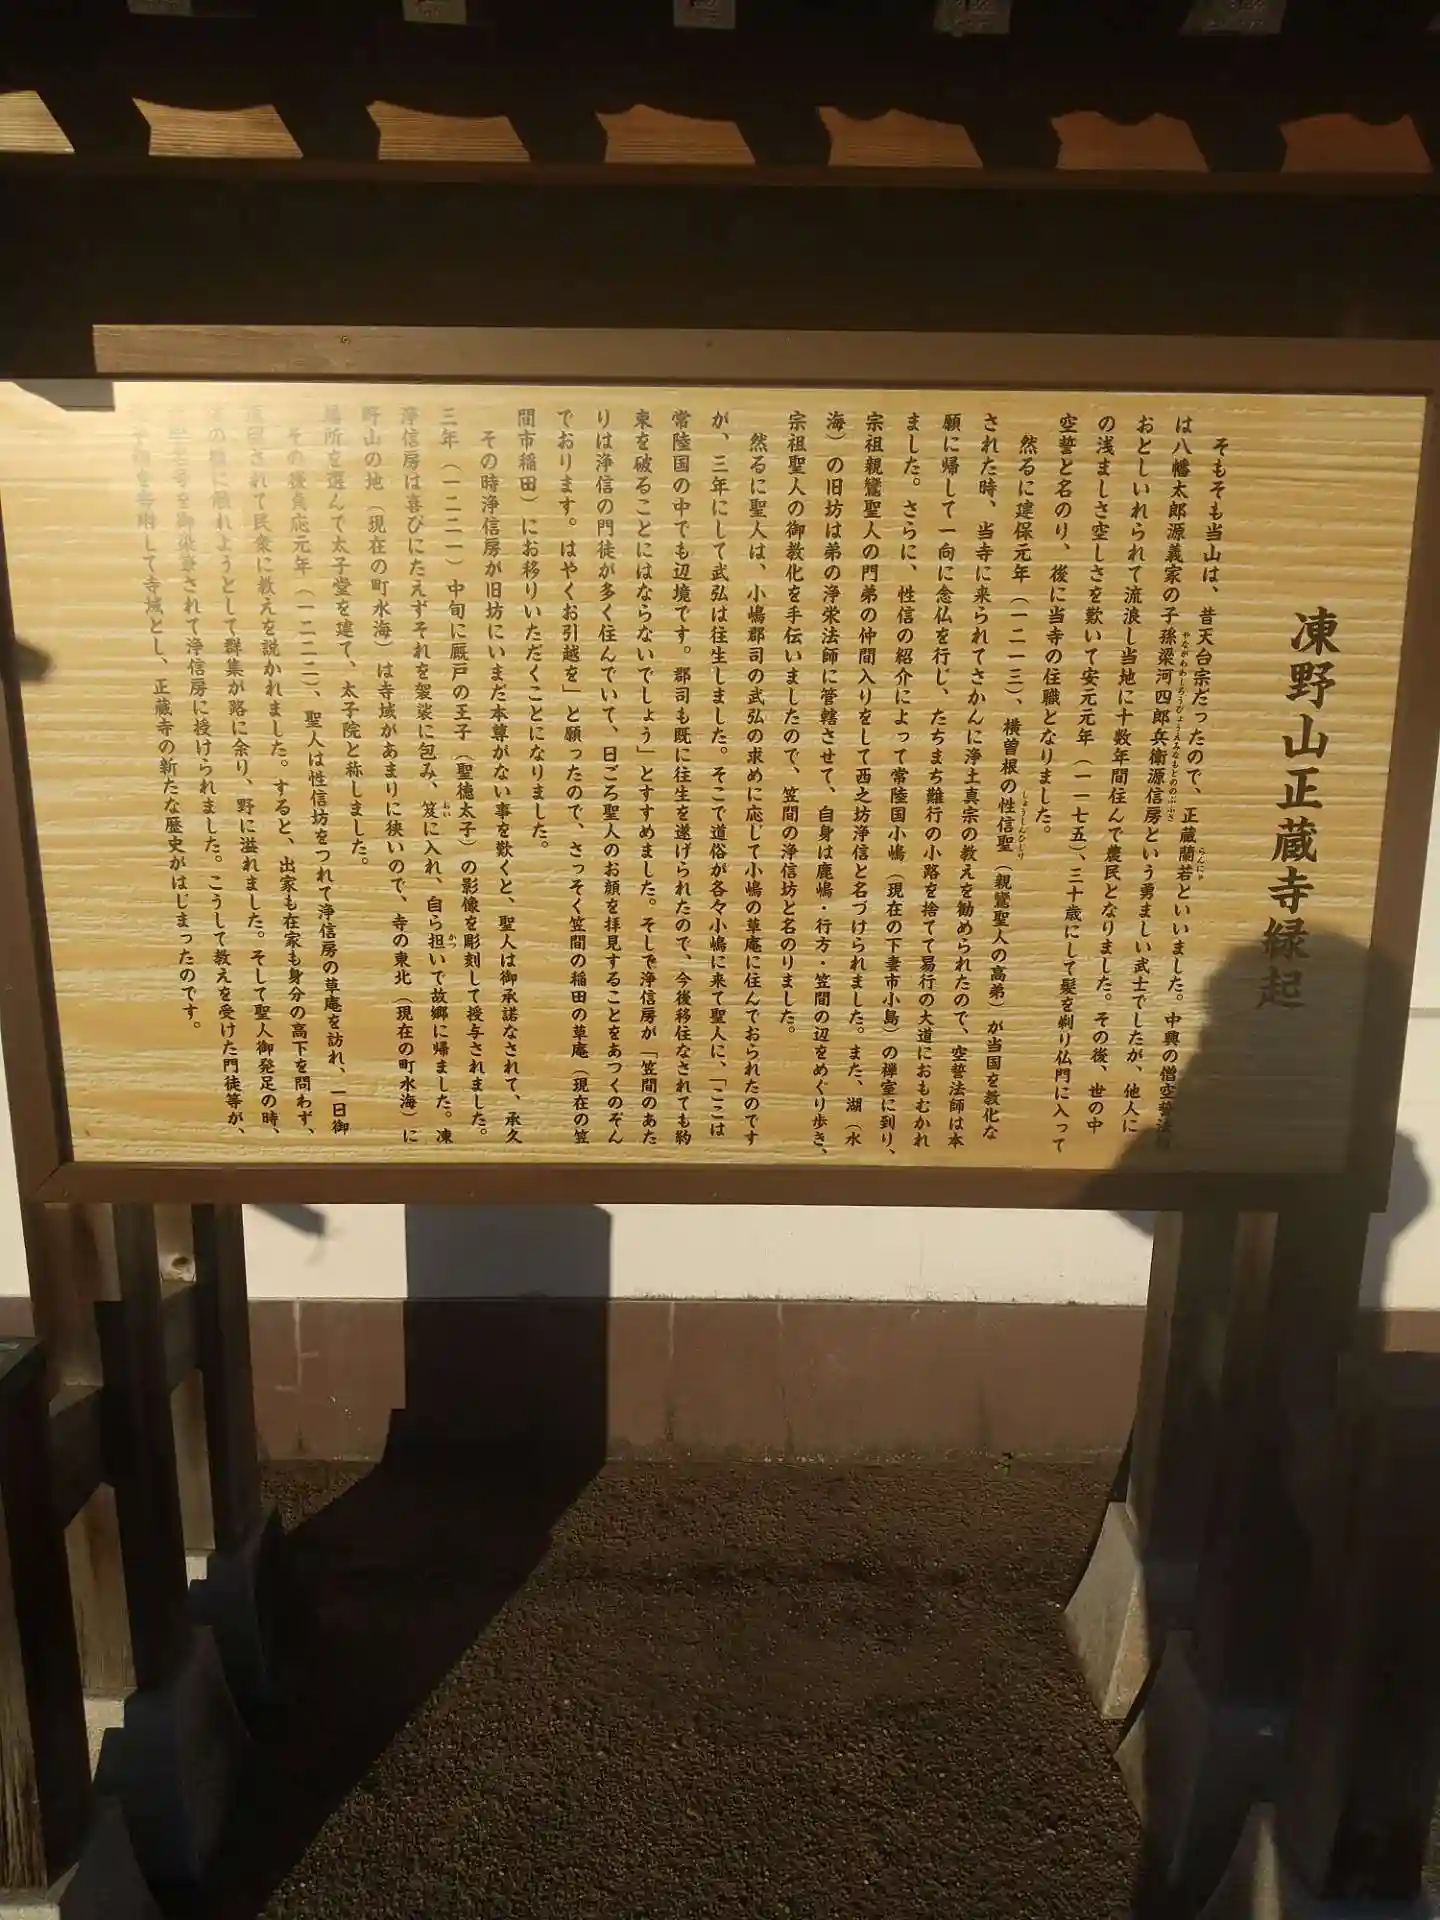 凍野山正蔵寺縁起
そもそも当山は、昔天台宗だったので、正蔵蘭若といいました。中興の僧空誓法師
らんにゃ
は八幡太郎源義家の子孫梁河四郎兵衛源信房という勇ましい武士でしたが、他人に
やながわしろうひょうえみなもとののぶふさ
おとしいれられて流浪し当地に十数年間住んで農民となりました。その後、世の中
の浅ましさ空しさを歎いて安元元年（一一七五）、三十歳にして髪を剃り仏門に入って
空誓と名のり、後に当寺の住職となりました。
然るに建保元年（一二一三）、横曽根の性信聖（親鸞聖人の高弟）が当国を教化な
しょうしんひじり
された時、当寺に来られてさかんに浄土真宗の教えを勧められたので、空誓法師は本
願に帰して一向に念仏を行じ、たちまち難行の小路を捨てて易行の大道におもむかれ
ました。さらに、性信の紹介によって常陸国小嶋（現在の下妻市小島）の禅室に到り、
宗祖親鸞聖人の門弟の仲間入りをして西之坊浄信と名づけられました。また、湖（水
海）の旧坊は弟の浄栄法師に管轄させて、自身は鹿嶋・行方・笠間の辺をめぐり歩き、
宗祖聖人の御教化を手伝いましたので、笠間の浄信坊と名のりました。
然るに聖人は、小嶋郡司の武弘の求めに応じて小嶋の草庵に住んでおられたのです
が、三年にして武弘は往生しました。そこで道俗が各々小嶋に来て聖人に、「ここは
常陸国の中でも辺境です。郡司も既に往生を遂げられたので、今後移住なされても約
束を破ることにはならないでしょう」とすすめました。そして浄信房が「笠間のあた
りは浄信の門徒が多く住んでいて、日ごろ聖人のお顔を拝見することをあつくのぞん
でおります。はやくお引越を」と願ったので、さっそく笠間の稲田の草庵（現在の笠
間市稲田）にお移りいただくことになりました。
その時浄信房が旧坊にいまだ本尊がない事を歎くと、聖人は御承諾なされて、承久
三年（一二二一）中旬に厩戸の王子（聖徳太子）の影像を彫刻して授与されました。
浄信房は喜びにたえずそれを袈裟に包み、笈に入れ、自ら担いで故郷に帰ました。凍
おい
かつ
野山の地（現在の町水海）は寺域があまりに狭いので、寺の東北（現在の町水海）に
場所を選んで太子堂を建て、太子院と称しました。
その後貞応元年（一二二二）、聖人は性信坊をつれて浄信房の草庵を訪れ、一日御
されて民衆に教えを説かれました。すると、出家も在家も身分の高下を問わず、
触れようとして群集が路に余り、野に溢れました。そして聖人御発足の時、
を御染筆されて浄信房に授けられました。こうして教えを受けた門徒等が、
して寺域とし、正蔵寺の新たな歴史がはじまったのです。